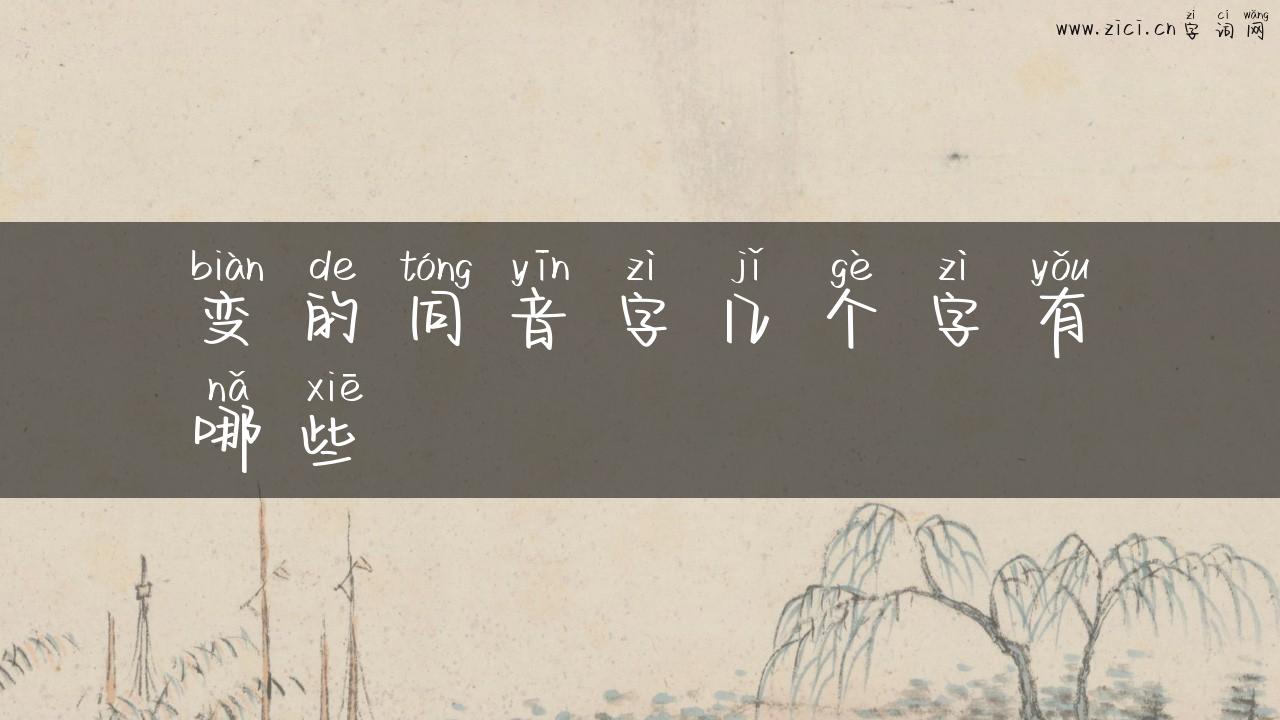 zì cí wǎng
www.zici.cn 字 词 网
biàn de tóng yīn zì jǐ gè zì yǒu
变 的 同 音 字 几 个 字 有
nǎ xiē
哪 些